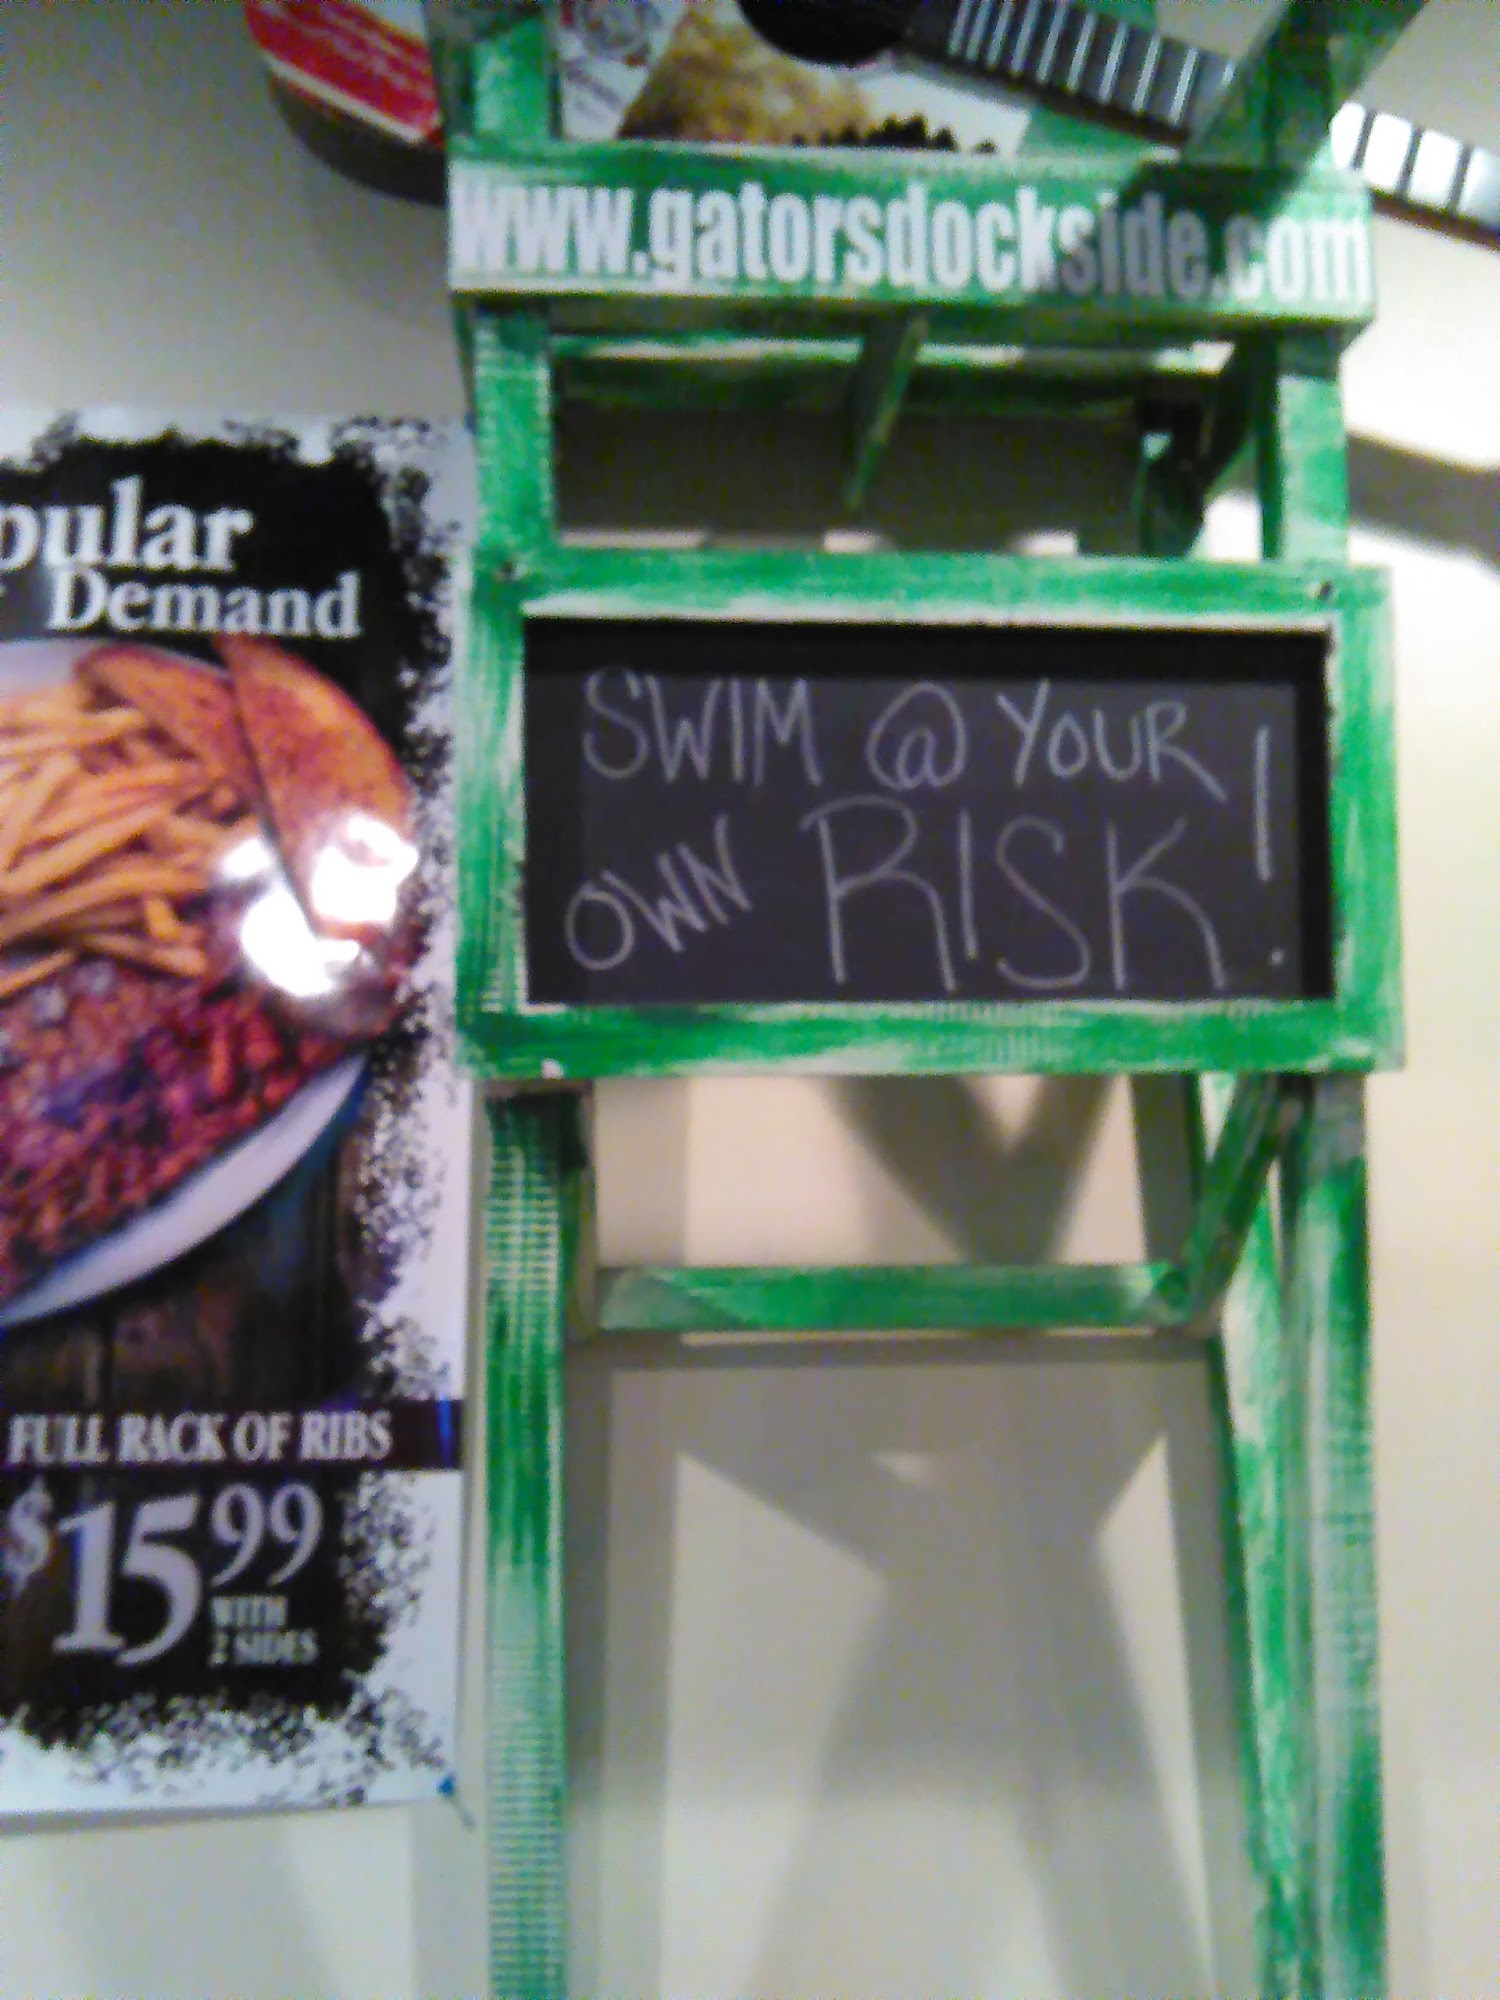 www.gatorsdockside.com
SWIM @ YOUR
OWN RISK!
pular
Demand
FULL RACK OF RIBS
$15 99
WITH
2 SIDES